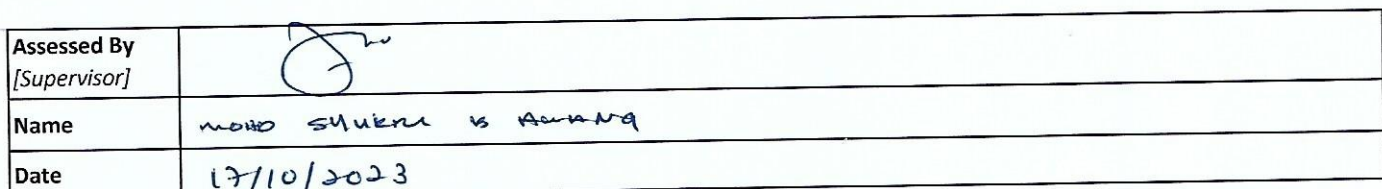 Assessed By
[Supervisor]
Name MOHD SYUKRI B AWANG
Date 17/10/2023